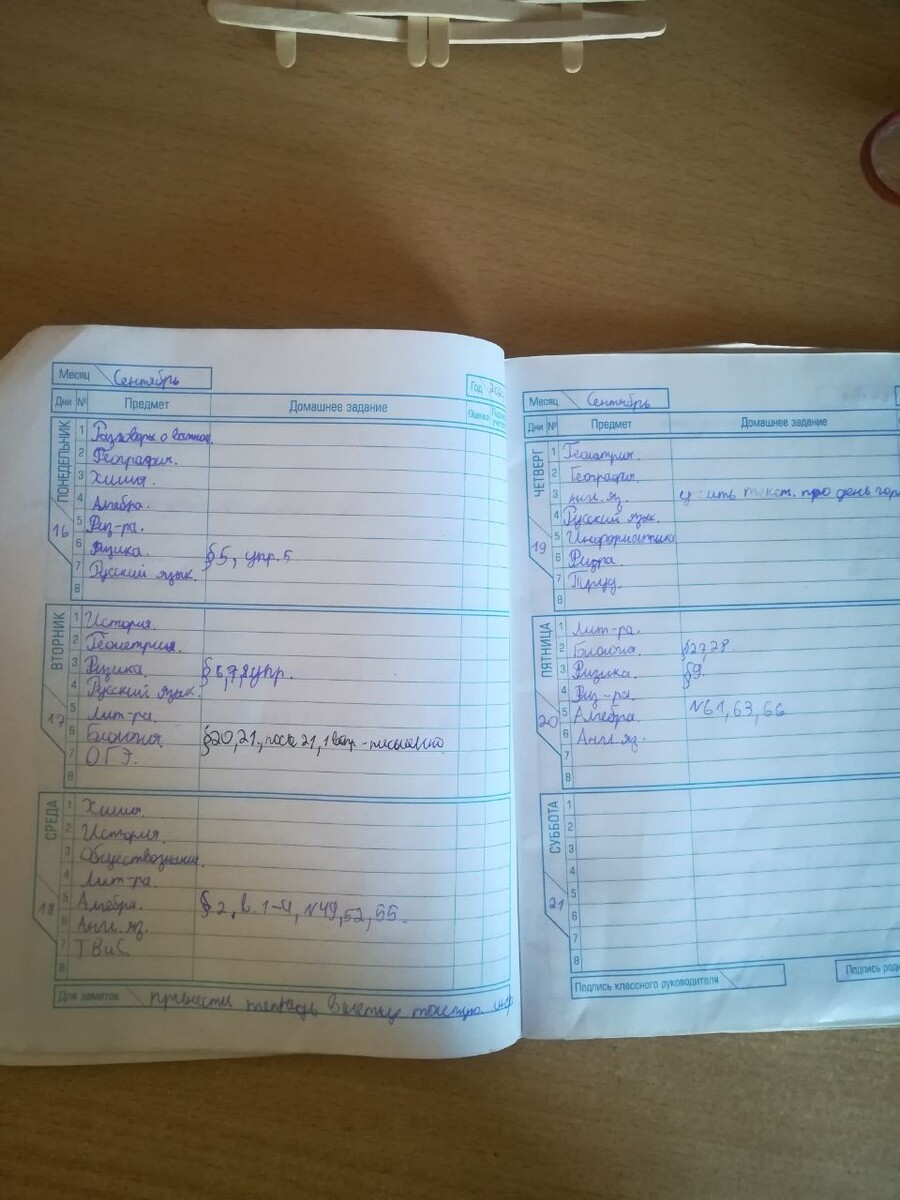 Месяц Сентябрь
Год
Дни № Предмет Домашнее задание Оценка
ПОНЕДЕЛЬНИК 16
1 Разговоры о важном.
2 География.
3 Химия.
4 Алгебра.
5 Физ-ра.
6 Физика. §5, упр. 5
7 Русский язык.
8
ВТОРНИК 17
1 История.
2 Геометрия.
3 Физика. упр.
4 Русский язык.
5 Лит-ра.
6 Биология. §20, 21, после 21, 1 вопр - письменно
7 ОГЭ.
8
СРЕДА 18
1 Химия.
2 История.
3 Обществознание.
4 Лит-ра.
5 Алгебра. § 2, в. 1-4, №49, 52, 55.
6 Англ. яз.
7 ТВиС
8
Для заметок принести тетрадь в клетку
Месяц Сентябрь
Дни № Предмет Домашнее задание
ЧЕТВЕРГ 19
1 Геометрия.
2 География.
3 Англ. яз. текст. про день
4 Русский язык.
5 Информатика
6 Физра.
7 Труд.
8
ПЯТНИЦА 20
1 Лит-ра.
2 Биология. §27,28.
3 Физика. §9.
4 Физ-ра.
5 Алгебра. №61, 63, 66
6 Англ. яз.
7
8
СУББОТА 21
1
2
3
4
5
6
7
8
Подпись классного руководителя
Подпись